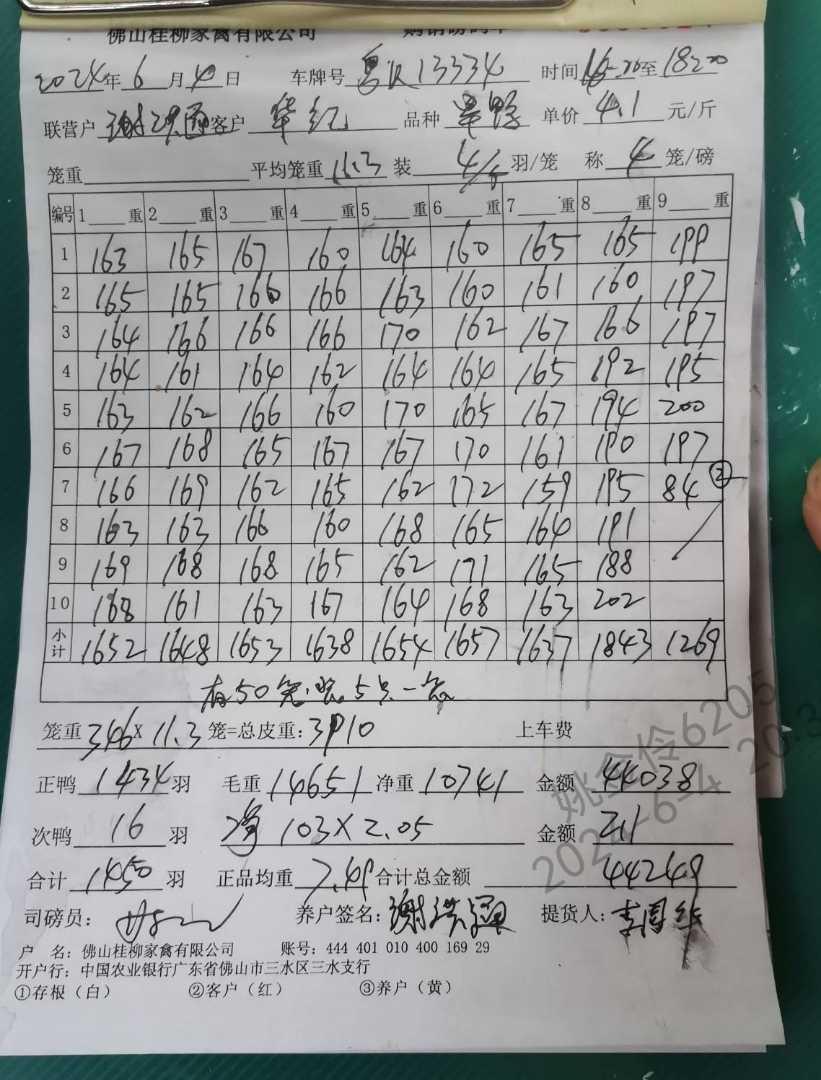 佛山桂柳家禽有限公司
2024年 6 月 4 日 车牌号 13334 时间 至 1820
联营户 谢洪通 客户 华红 品种 单价 4.1 元/斤
笼重 平均笼重 11.3 装 4/5 羽/笼 称 4 笼/磅
编号 1 重 2 重 3 重 4 重 5 重 6 重 7 重 8 重 9 重
1 163 165 167 160 164 160 165 165 199
2 165 165 166 166 163 160 161 160 197
3 164 166 166 166 170 162 167 166 197
4 164 161 164 162 164 164 165 192 195
5 163 162 166 160 170 165 167 194 200
6 167 168 165 167 167 170 161 190 197
7 166 169 162 165 162 172 159 195 84 ②
8 163 163 166 160 168 165 164 191
9 169 168 168 165 162 171 165 188
10 168 161 163 167 164 168 163 202
小计 1652 1648 1653 1638 1654 1657 1637 1843 1269
有50笼装5只一笼
笼重 346 × 11.3 笼=总皮重: 3910 上车费
正鸭 1434 羽 毛重 14651 净重 10741 金额 44038
次鸭 16 羽 净 103×2.05 金额 211
合计 1450 羽 正品均重 7.49 合计总金额 44249
司磅员: 养户签名: 谢洪通 提货人: 李国华
户 名: 佛山桂柳家禽有限公司 账号: 444 401 010 400 169 29
开户行: 中国农业银行广东省佛山市三水区三水支行
①存根(白) ②客户(红) ③养户(黄)
姚金伶6205
2024-6-4 20:3